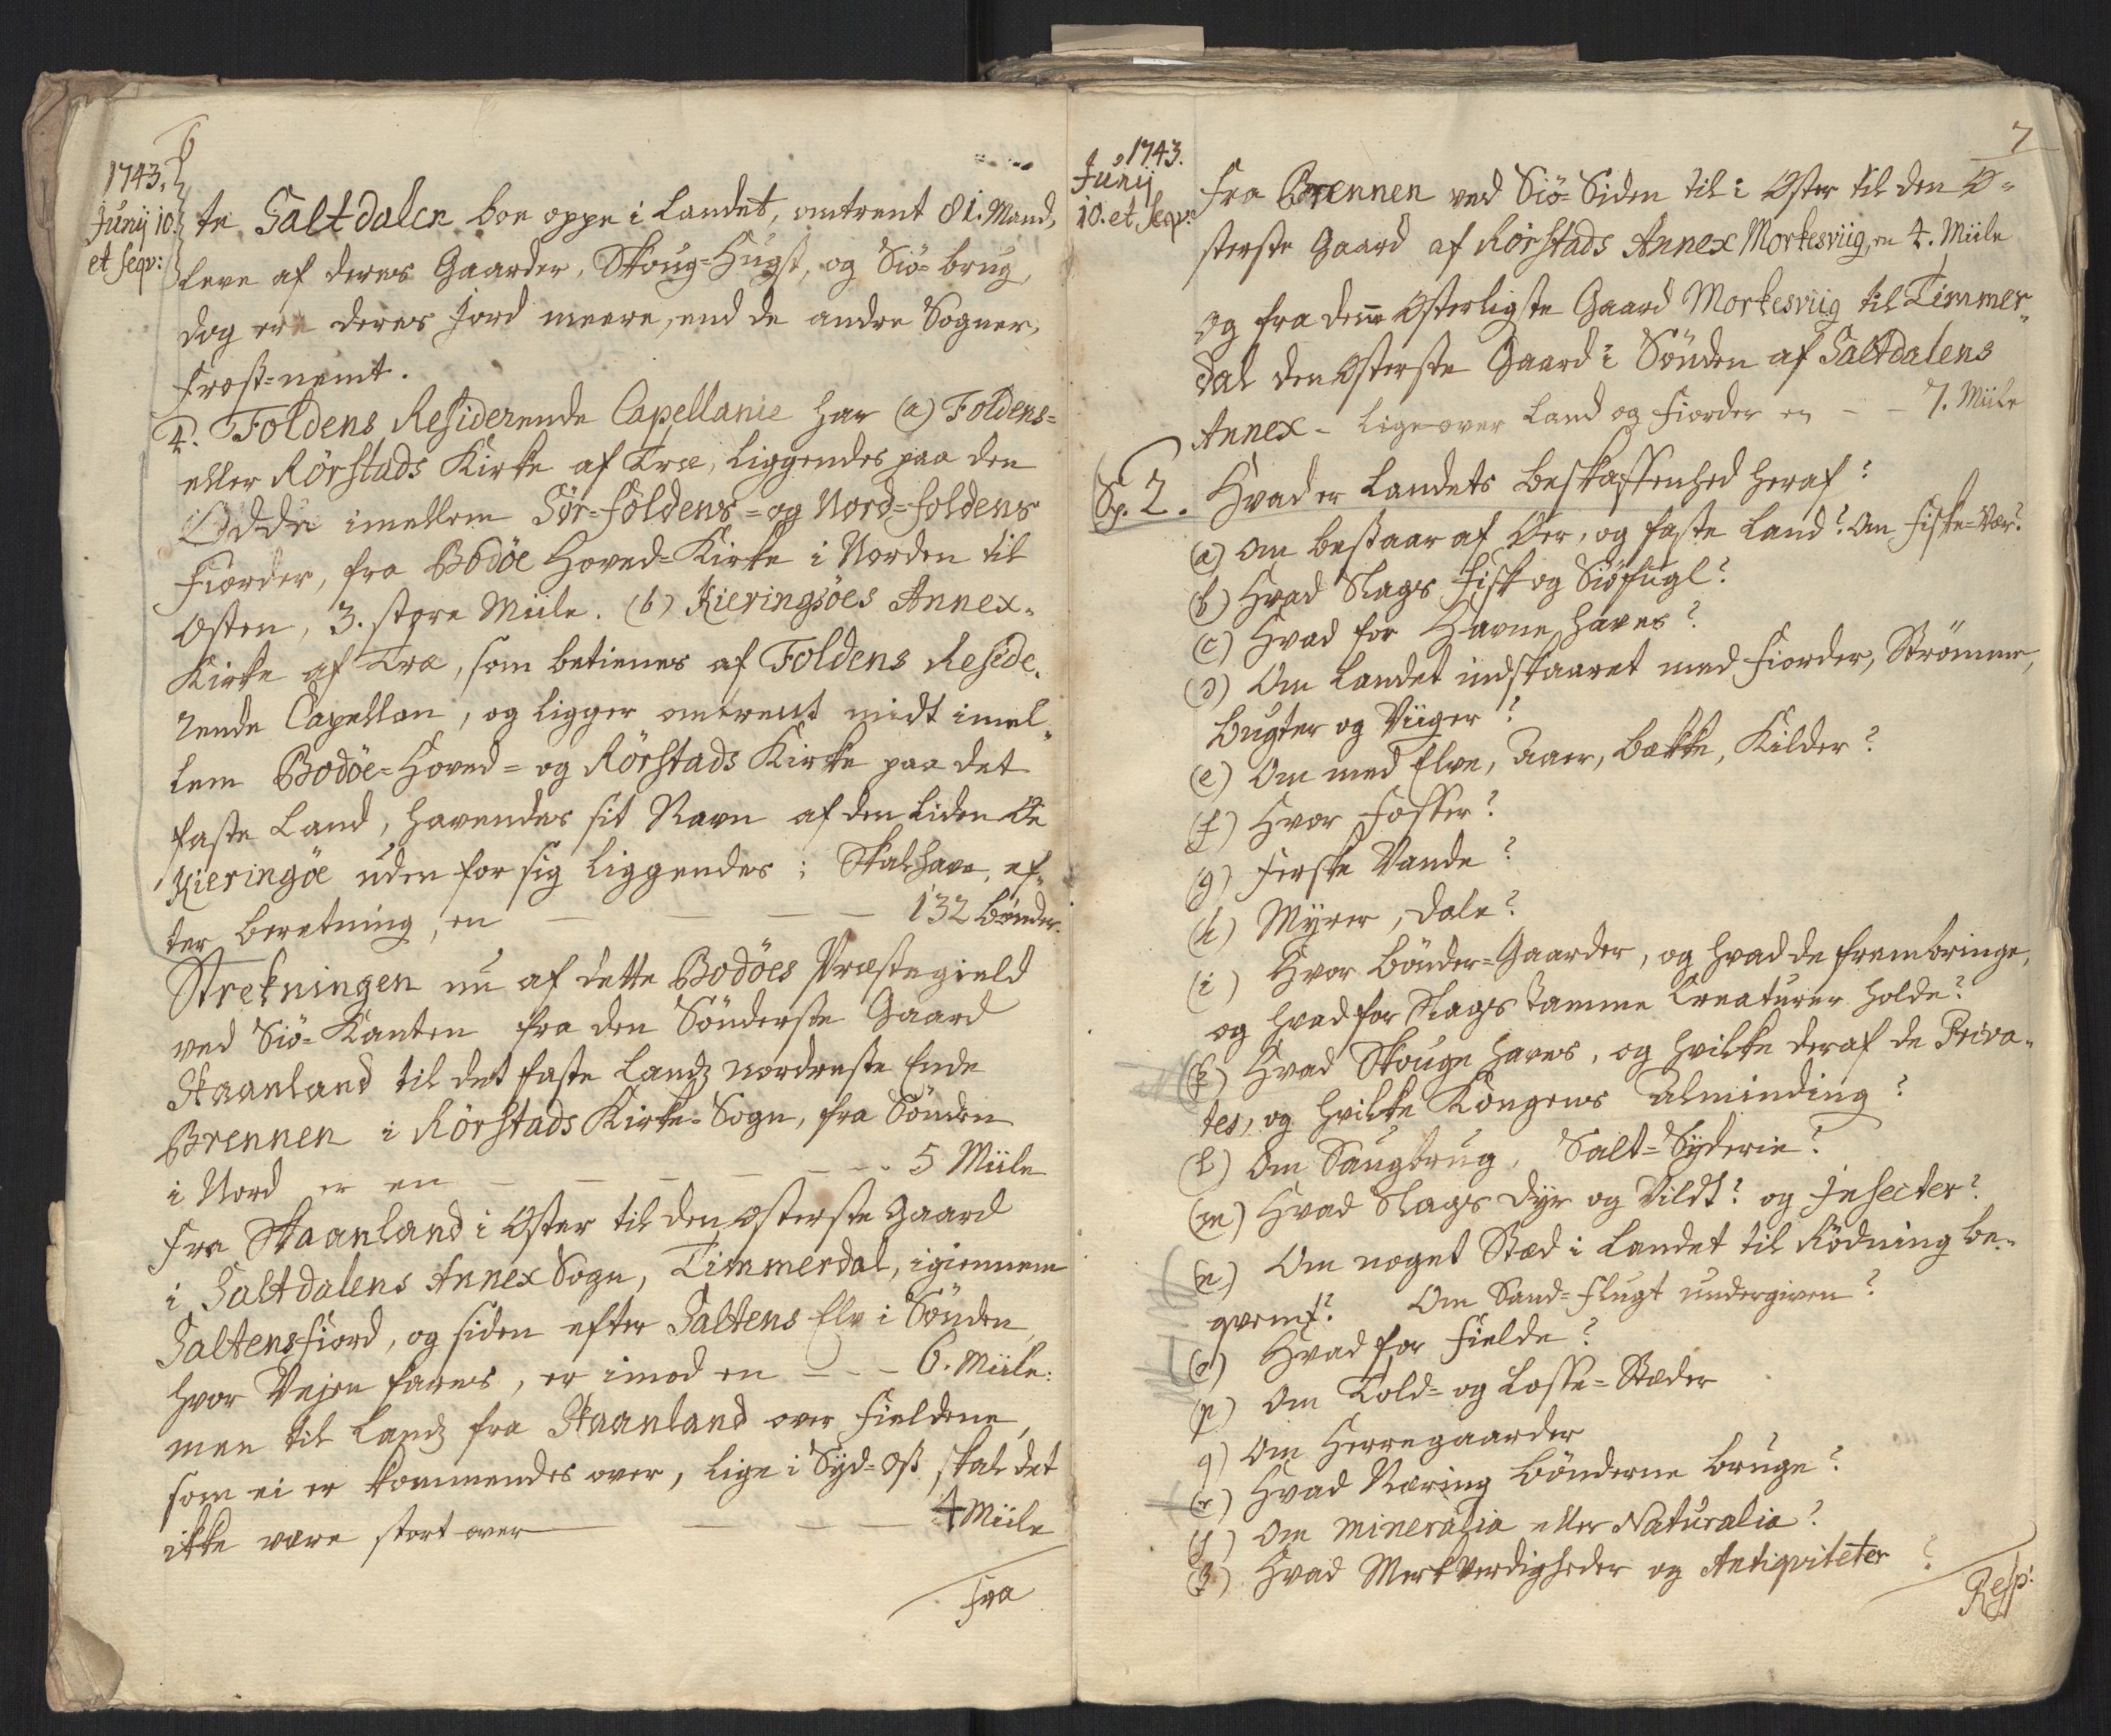 6
1743.
Junij 10.
et seqv:
te Saltdalen boe oppe i Landet, omtrent 81. Mand,
leve af deres Gaarder, Skoug-Hugst, og Siö-brug,
dog ere deres Jord meere, end de andre Sogner,
frost-nemt.
4. Foldens Residerende Capellanie har (a) Foldens-
eller Rörstads Kirke af Træ, liggendes paa den
Odde imellem Sör-Foldens- og Nord-Foldens
Fiorder, fra Bodöe Hoved-Kirke i Norden til
Osten, 3. store Miile. (b) Kieringöes Annex-
Kirke af Træ, som betienes af Foldens Reside-
rende Capellan, og ligger omtrent midt imel-
lem Bodöe-Hoved- og Rörstads Kirke paa det
faste Land, havendes sit Navn af den liden Öe
Kieringöe uden for sig liggendes: Skal have, ef-
ter beretning, en — — — — 132 bönder.
Strekningen nu af dette Bodöes Præstegield
ved Siö-Kanten fra den Sönderste Gaard
Skaanland til det faste Landz nordreste Ende
Brennen i Rörstads Kirke-Sogn, fra Sönden
i Nord er en — — — — — 5 Miile
Fra Skaanland i Öster til den Østerste Gaard
i Saltdalens Annex Sogn, Timmerdal, igiennem
Saltensfiord, og siden efter Saltens Elv i Sönden,
hvor Vejen fares, er imod en — — — 6. Miile:
men til Landz fra Skaanland over Fieldene,
som ei er kommendes over, lige i Syd-Ost, skal det
ikke være stort over — — — — 4 Miile
Fra
7
1743.
Junij
10. et seqv:
Fra Brennen ved Siö-Siden til i Öster til den Ö-
sterste Gaard af Rörstads Annex Morkesviig, en 4. Miile
og fra denne Österligste Gaard Morkesviig til Timmer-
dal den Österste Gaard i Sönden af Saltdalens
Annex - lige over Land og Fiorder en — — 7. Miile
Sp. 2. Hvad er Landets beskaffenhed heraf?
(a) Om bestaar af Öer, og faste Land? Om Fiske-Vær?
(b) Hvad Slags Fisk og Siöfugl?
(c) Hvad for Havne haves?
(d) Om Landet indskaaret med Fiorder, Strömme,
bugter og Viiger?
(e) Om med Elve, Aaer, bække, Kilder?
(f) Hvor Fosser?
(g) Ferske Vande?
(h) Myrer, Dale?
(i) Hvor bönder-Gaarder, og hvad de frembringe,
og hvad for Slags tamme Creaturer holde?
(k) Hvad Skouge haves, og hvilke deraf de Priva-
tes, og hvilke Kongens Alminding?
(l) Om Saugbrug, Salt-Syderie?
(m) Hvad Slags Dyr og Vildt? og Insecter?
(n) Om noget Stæd i Landet til Rödning be-
qvemt? Om Sand-Flugt undergiven?
(o) Hvad for Fielde?
(p) Om Told- og Losse-Stæder
q) Om Herregaarder
(r) Hvad Næring bönderne bruge?
(s) Om mineralia eller Naturalia?
(3) Hvad Merkverdigheder og Antiqviteter?
Resp: